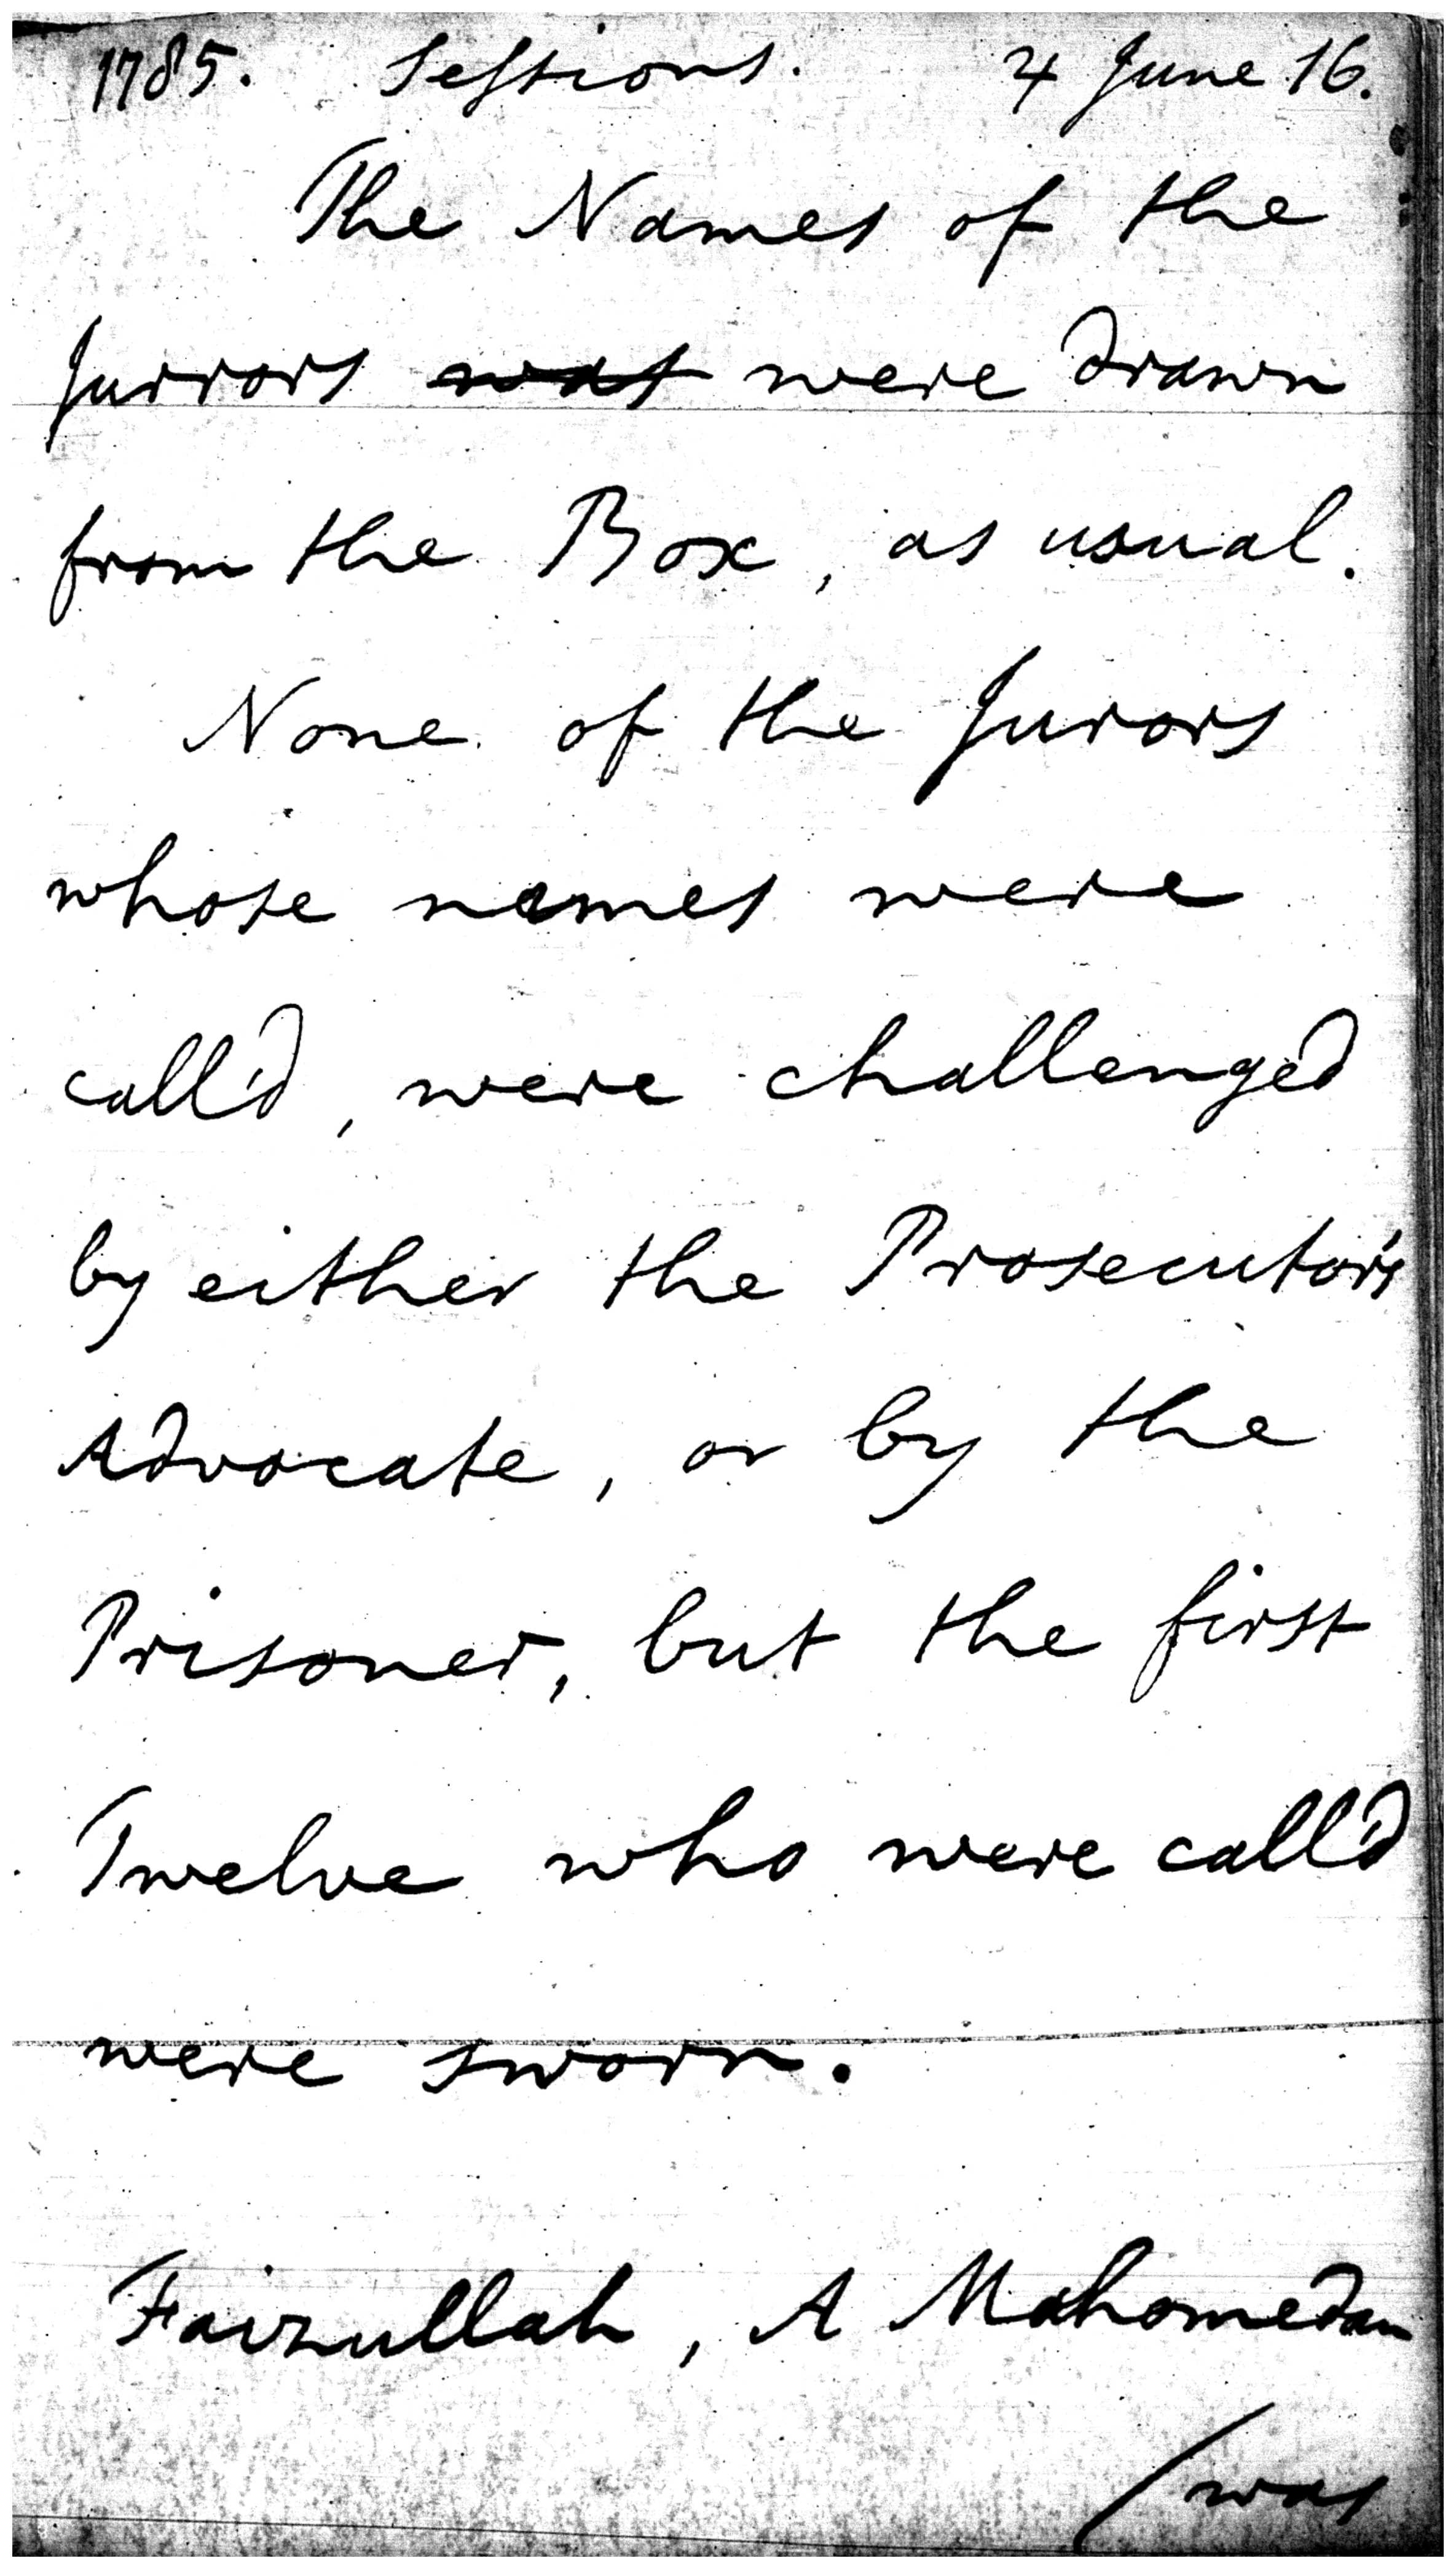 1785. Sessions. 4 June 16.
The Names of the
Jurrors was were drawn
from the Box, as usual.
None of the Jurors
whose names were
call'd, were challenged
by either the Prosecutor's
Advocate, or by the
Prisoner, but the first
Twelve who were call'd
were sworn.
Faizullah, A Mahomedan
/was